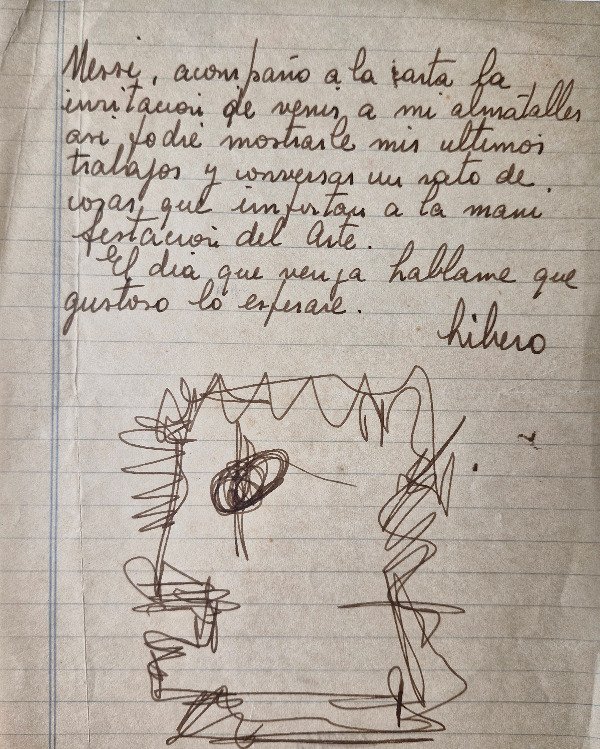 Messi, acompaño a la carta la
invitacion de venir a mi almatalles
asi podré mostrarle mis ultimos
trabajos y conversar un rato de
cosas que importan a la mani
festacion del Arte.
El dia que venga hablame que
gustoso lo esperaré.
Libero